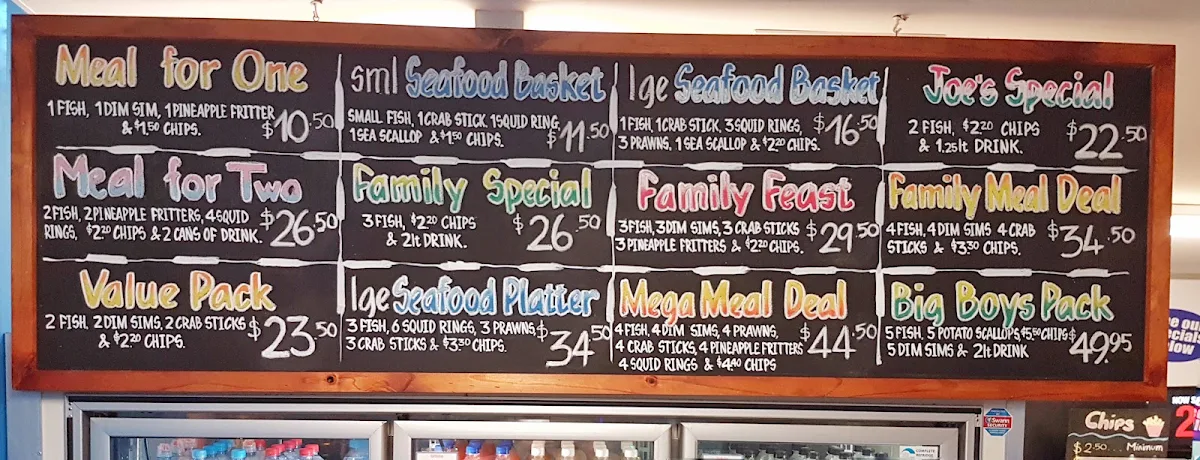 Meal for One
1 FISH, 1 DIM SIM, 1 PINEAPPLE FRITTER
& $1.50 CHIPS.
$10.50
sml Seafood Basket
SMALL FISH, 1 CRAB STICK, 1 SQUID RING,
1 SEA SCALLOP & $1.50 CHIPS.
$11.50
lge Seafood Basket
1 FISH, 1 CRAB STICK, 3 SQUID RINGS,
3 PRAWNS, 1 SEA SCALLOP & $2.20 CHIPS.
$16.50
Joe's Special
2 FISH, $2.20 CHIPS
& 1.25lt DRINK.
$22.50
Meal for Two
2 FISH, 2 PINEAPPLE FRITTERS, 4 SQUID
RINGS, $2.20 CHIPS & 2 CANS OF DRINK.
$26.50
Family Special
3 FISH, $2.20 CHIPS
& 2lt DRINK.
$26.50
Family Feast
3 FISH, 3 DIM SIMS, 3 CRAB STICKS
3 PINEAPPLE FRITTERS & $2.20 CHIPS.
$29.50
Family Meal Deal
4 FISH, 4 DIM SIMS 4 CRAB
STICKS & $3.30 CHIPS.
$34.50
Value Pack
2 FISH, 2 DIM SIMS, 2 CRAB STICKS
& $2.20 CHIPS.
$23.50
lge Seafood Platter
3 FISH, 6 SQUID RINGS, 3 PRAWNS
3 CRAB STICKS & $3.30 CHIPS.
$34.50
Mega Meal Deal
4 FISH, 4 DIM SIMS, 4 PRAWNS,
4 CRAB STICKS, 4 PINEAPPLE FRITTERS
4 SQUID RINGS & $4.40 CHIPS
$44.50
Big Boys Pack
5 FISH, 5 POTATO SCALLOPS, $5.50 CHIPS
5 DIM SIMS & 2lt DRINK
$49.95
Swann
SECURITY
Chips
$2.50... Minimum